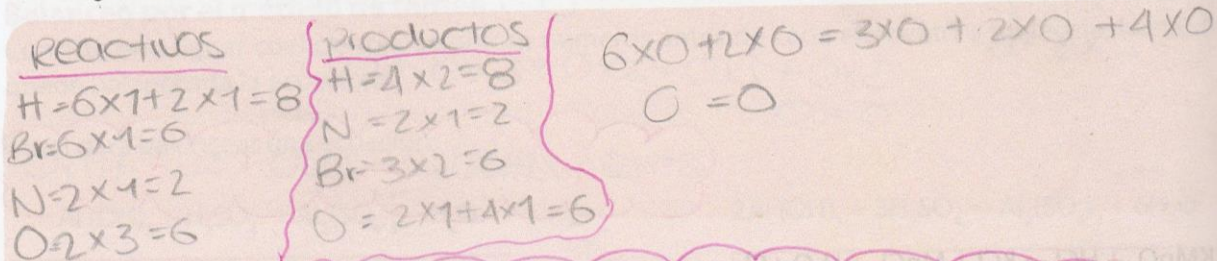 Reactivos
H=6x1+2x1=8
Br=6x1=6
N=2x1=2
O=2x3=6
Productos
H=4x2=8
N=2x1=2
Br=3x2=6
O=2x1+4x1=6
6x0+2x0=3x0+2x0+4x0
0=0